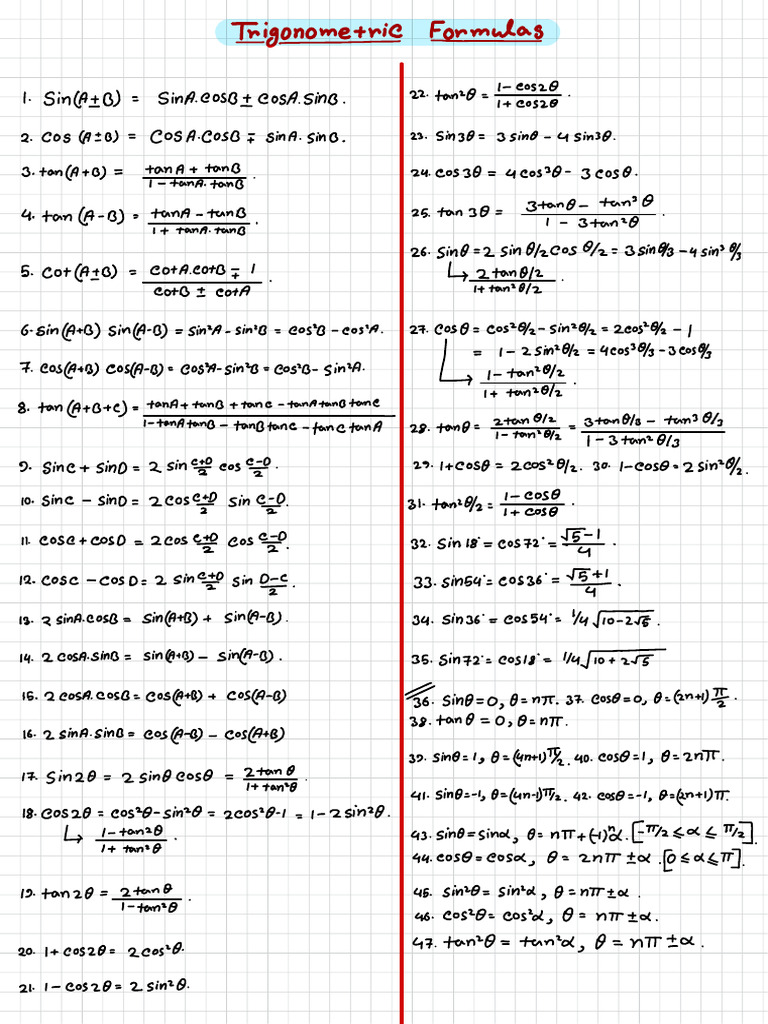 Trigonometric Formulas
1. Sin(A±B) = SinA.cosB ± cosA.SinB.
2. Cos (A±B) = COSA.COSB ∓ SinA. SinB.
3. tan(A+B) = (tanA + tanB)/(1 - tanA. tanB).
4. tan (A-B) = (tanA - tanB)/(1 + tanA. tanB).
5. Cot(A±B) = (CotA.cotB ∓ 1)/(CotB ± CotA).
6. Sin(A+B) Sin(A-B) = Sin²A - Sin²B = COS²B - COS²A.
7. COS(A+B) COS(A-B) = COS²A - Sin²B = COS²B - Sin²A.
8. tan (A+B+C) = (tanA + tanB + tanC - tanAtanBtanC)/(1 - tanAtanB - tanBtanC - tanCtanA)
9. SinC + SinD = 2 Sin (C+D)/2 COS (C-D)/2.
10. SinC - SinD = 2 COS (C+D)/2 Sin (C-D)/2.
11. COSC + COSD = 2 COS (C+D)/2 COS (C-D)/2.
12. COSC - COSD = 2 Sin (C+D)/2 Sin (D-C)/2.
13. 2 SinA.COSB = Sin(A+B) + Sin(A-B).
14. 2 COSA.SinB = Sin(A+B) - Sin(A-B).
15. 2 COSA.COSB = COS(A+B) + COS(A-B)
16. 2 SinA.SinB = COS(A-B) - COS(A+B)
17. Sin2θ = 2 Sinθ COSθ = (2tanθ)/(1+tan²θ).
18. COS2θ = COS²θ - Sin²θ = 2COS²θ-1 = 1 - 2 Sin²θ.
↳ (1 - tan²θ)/(1 + tan²θ).
19. tan2θ = (2tanθ)/(1 - tan²θ).
20. 1 + COS2θ = 2COS²θ.
21. 1 - COS2θ = 2 Sin²θ.
22. tan²θ = (1 - COS2θ)/(1 + COS2θ).
23. Sin3θ = 3 Sinθ - 4 Sin3θ.
24. COS3θ = 4COS³θ - 3 COSθ.
25. tan 3θ = (3tanθ - tan³θ)/(1 - 3tan²θ).
26. Sinθ = 2 Sinθ/2 COS θ/2 = 3 Sinθ/3 - 4 Sin³ θ/3
↳ (2 tanθ/2)/(1 + tan²θ/2).
27. COSθ = COS²θ/2 - Sin²θ/2 = 2COS²θ/2 - 1
= 1 - 2 Sin²θ/2 = 4COS³θ/3 - 3COSθ/3
↳ (1 - tan²θ/2)/(1 + tan²θ/2).
28. tanθ = (2tanθ/2)/(1 - tan²θ/2) = (3tanθ/3 - tan³θ/3)/(1 - 3tan²θ/3)
29. 1 + COSθ = 2COS²θ/2. 30. 1 - COSθ = 2 Sin²θ/2.
31. tan²θ/2 = (1 - COSθ)/(1 + COSθ)
32. Sin 18° = COS 72° = (√5 - 1)/4
33. Sin54° = COS36° = (√5 + 1)/4.
34. Sin36° = COS54° = 1/4 √(10 - 2√5).
35. Sin72° = COS18° = 1/4 √(10 + 2√5)
36. Sinθ = 0, θ = nπ. 37. COSθ = 0, θ = (2n+1) π/2.
38. tanθ = 0, θ = nπ.
39. Sinθ = 1, θ = (4n+1)π/2. 40. COSθ = 1, θ = 2nπ.
41. Sinθ = -1, θ = (4n-1)π/2. 42. COSθ = -1, θ = (2n+1)π.
43. Sinθ = Sinα, θ = nπ + (-1)ⁿα. [-π/2 ≤ α ≤ π/2].
44. COSθ = COSα, θ = 2nπ ± α. [0 ≤ α ≤ π].
45. Sin²θ = Sin²α, θ = nπ ± α.
46. COS²θ = COS²α, θ = nπ ± α.
47. tan²θ = tan²α, θ = nπ ± α.